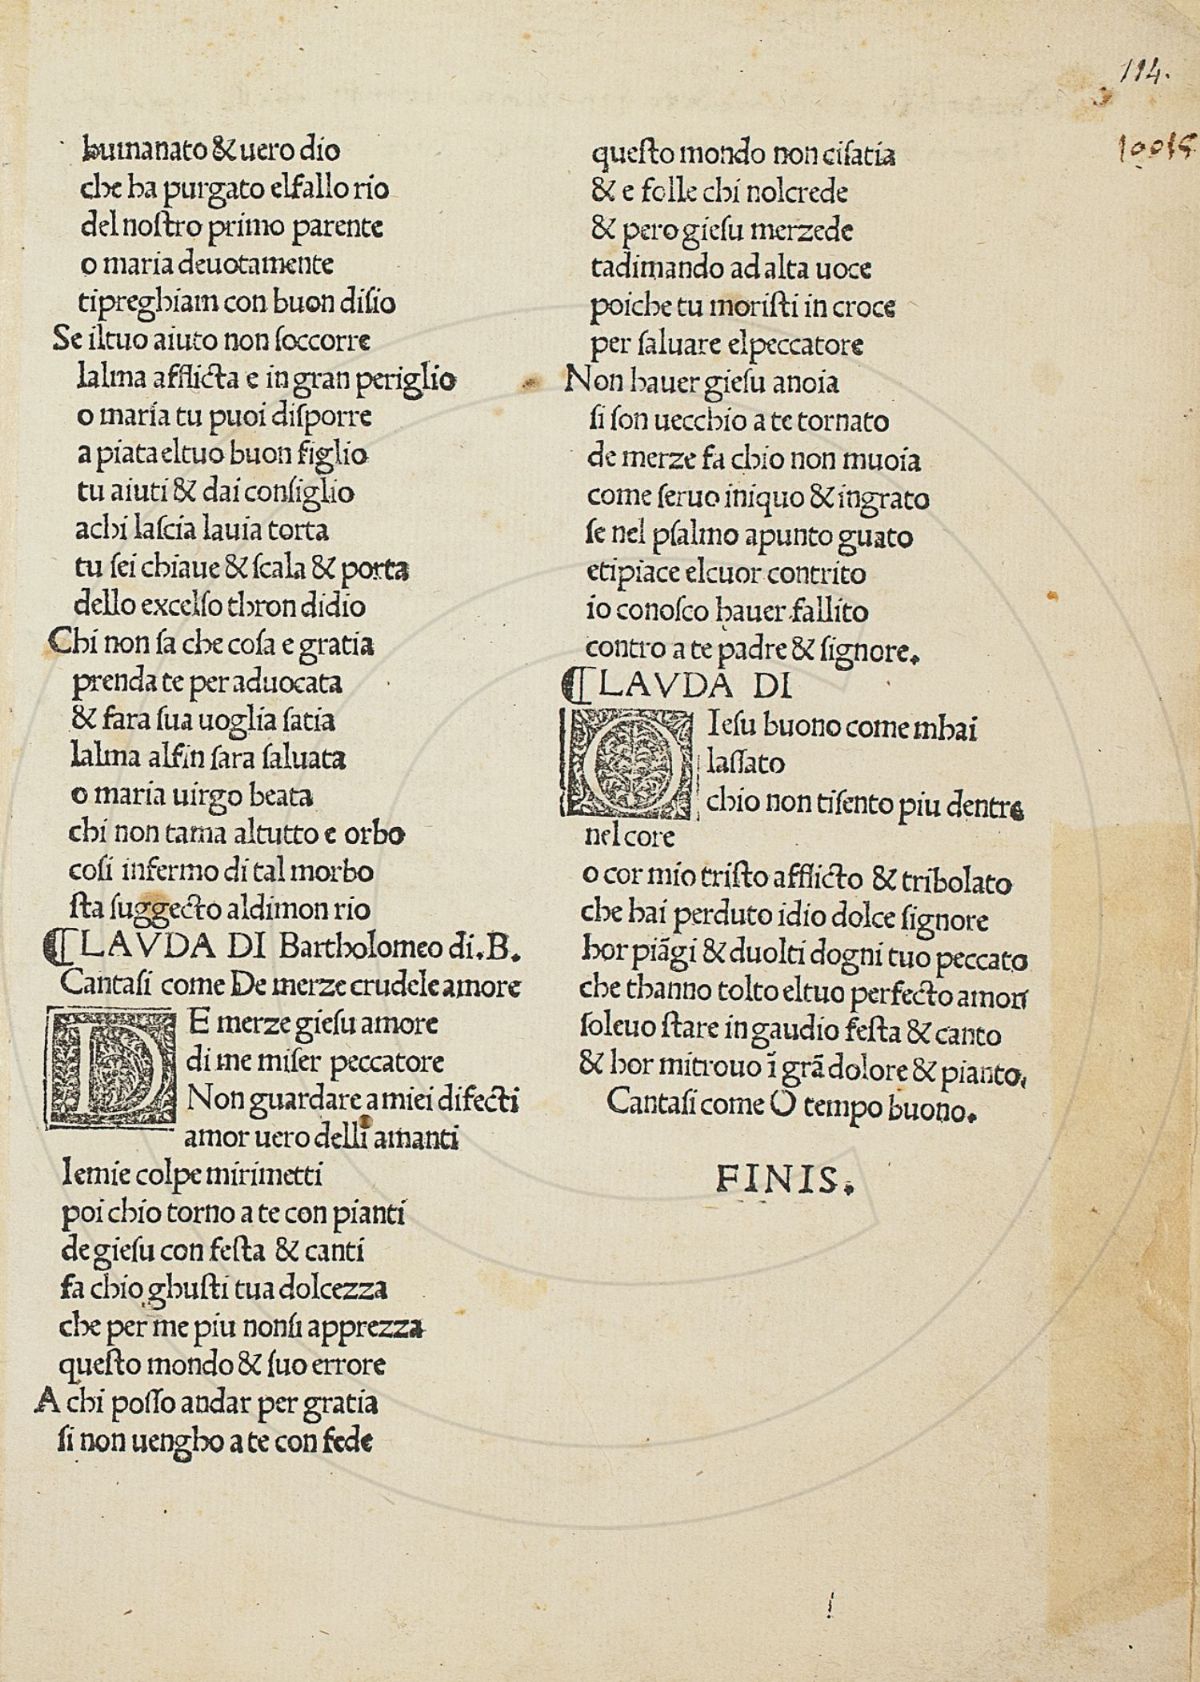 114.
10015
humanato & uero dio
che ha purgato elfallo rio
del nostro primo parente
o maria deuotamente
tipreghiam con buon disio
Se iltuo aiuto non soccorre
lalma afflicta e in gran periglio
o maria tu puoi disporre
a piata eltuo buon figlio
tu aiuti & dai consiglio
achi lascia lauia torta
tu sei chiaue & scala & porta
dello excelso thron didio
Chi non sa che cosa e gratia
prenda te per aduocata
& fara sua uoglia satia
lalma alfin sara saluata
o maria uirgo beata
chi non tama altutto e orbo
cosi infermo di tal morbo
sta suggecto aldimon rio
¶LAVDA DI Bartholomeo di.B.
Cantasi come De merze crudele amore
DE merze giesu amore
di me miser peccatore
Non guardare a miei difecti
amor uero delli amanti
lemie colpe mirimetti
poi chio torno a te con pianti
de giesu con festa & canti
fa chio ghusti tua dolcezza
che per me piu nonsi apprezza
questo mondo & suo errore
A chi posso andar per gratia
si non uengho a te con fede
questo mondo non cisatia
& e folle chi nolcrede
& pero giesu merzede
tadimando ad alta uoce
poiche tu moristi in croce
per saluare elpeccatore
Non hauer giesu anoia
si son uecchio a te tornato
de merze fa chio non muoia
come seruo iniquo & ingrato
se nel psalmo apunto guato
etipiace elcuor contrito
io conosco hauer fallito
contro a te padre & signore.
¶LAVDA DI
O Iesu buono come mhai
lassato
chio non tisento piu dentro
nel core
o cor mio tristo afflicto & tribolato
che hai perduto idio dolce signore
hor piãgi & duolti dogni tuo peccato
che thanno tolto eltuo perfecto amor
soleuo stare in gaudio festa & canto
& hor mitrouo ĩ grã dolore & pianto.
Cantasi come O tempo buono.
FINIS.